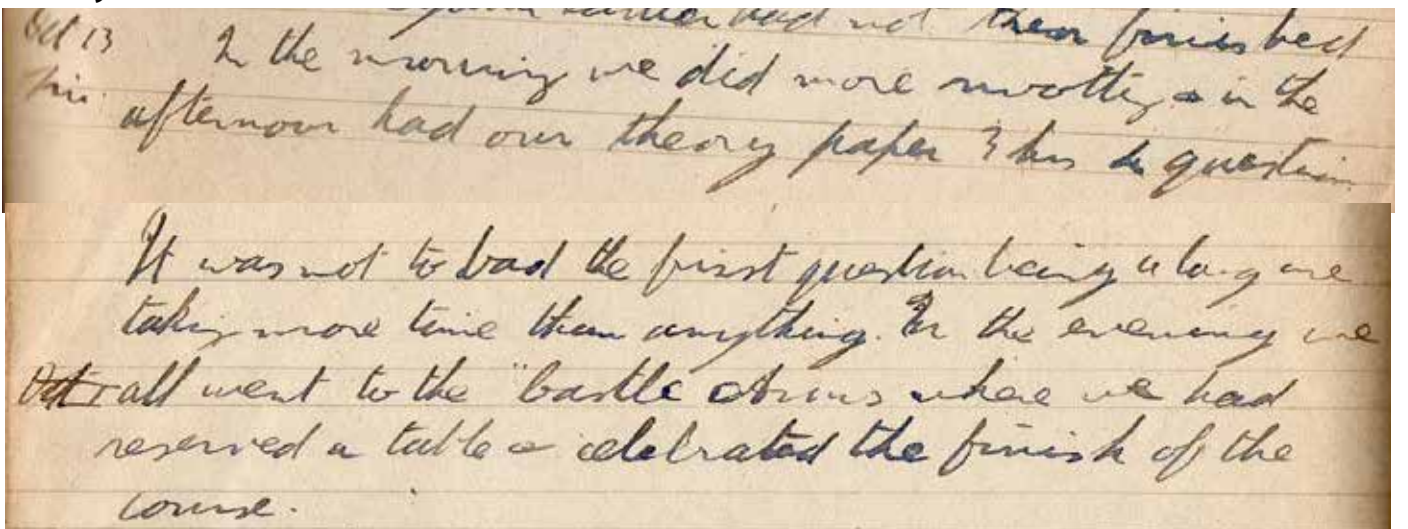 had not then finished
Oct 13 In the morning we did more swotting & in the
Fri. afternoon had our theory paper 3 hrs 6 question
It was not to bad the first question being a long one
taking more time than anything. In the evening we
Oct all went to the "Castle Arms where we had
reserved a table & celebrated the finish of the
course.